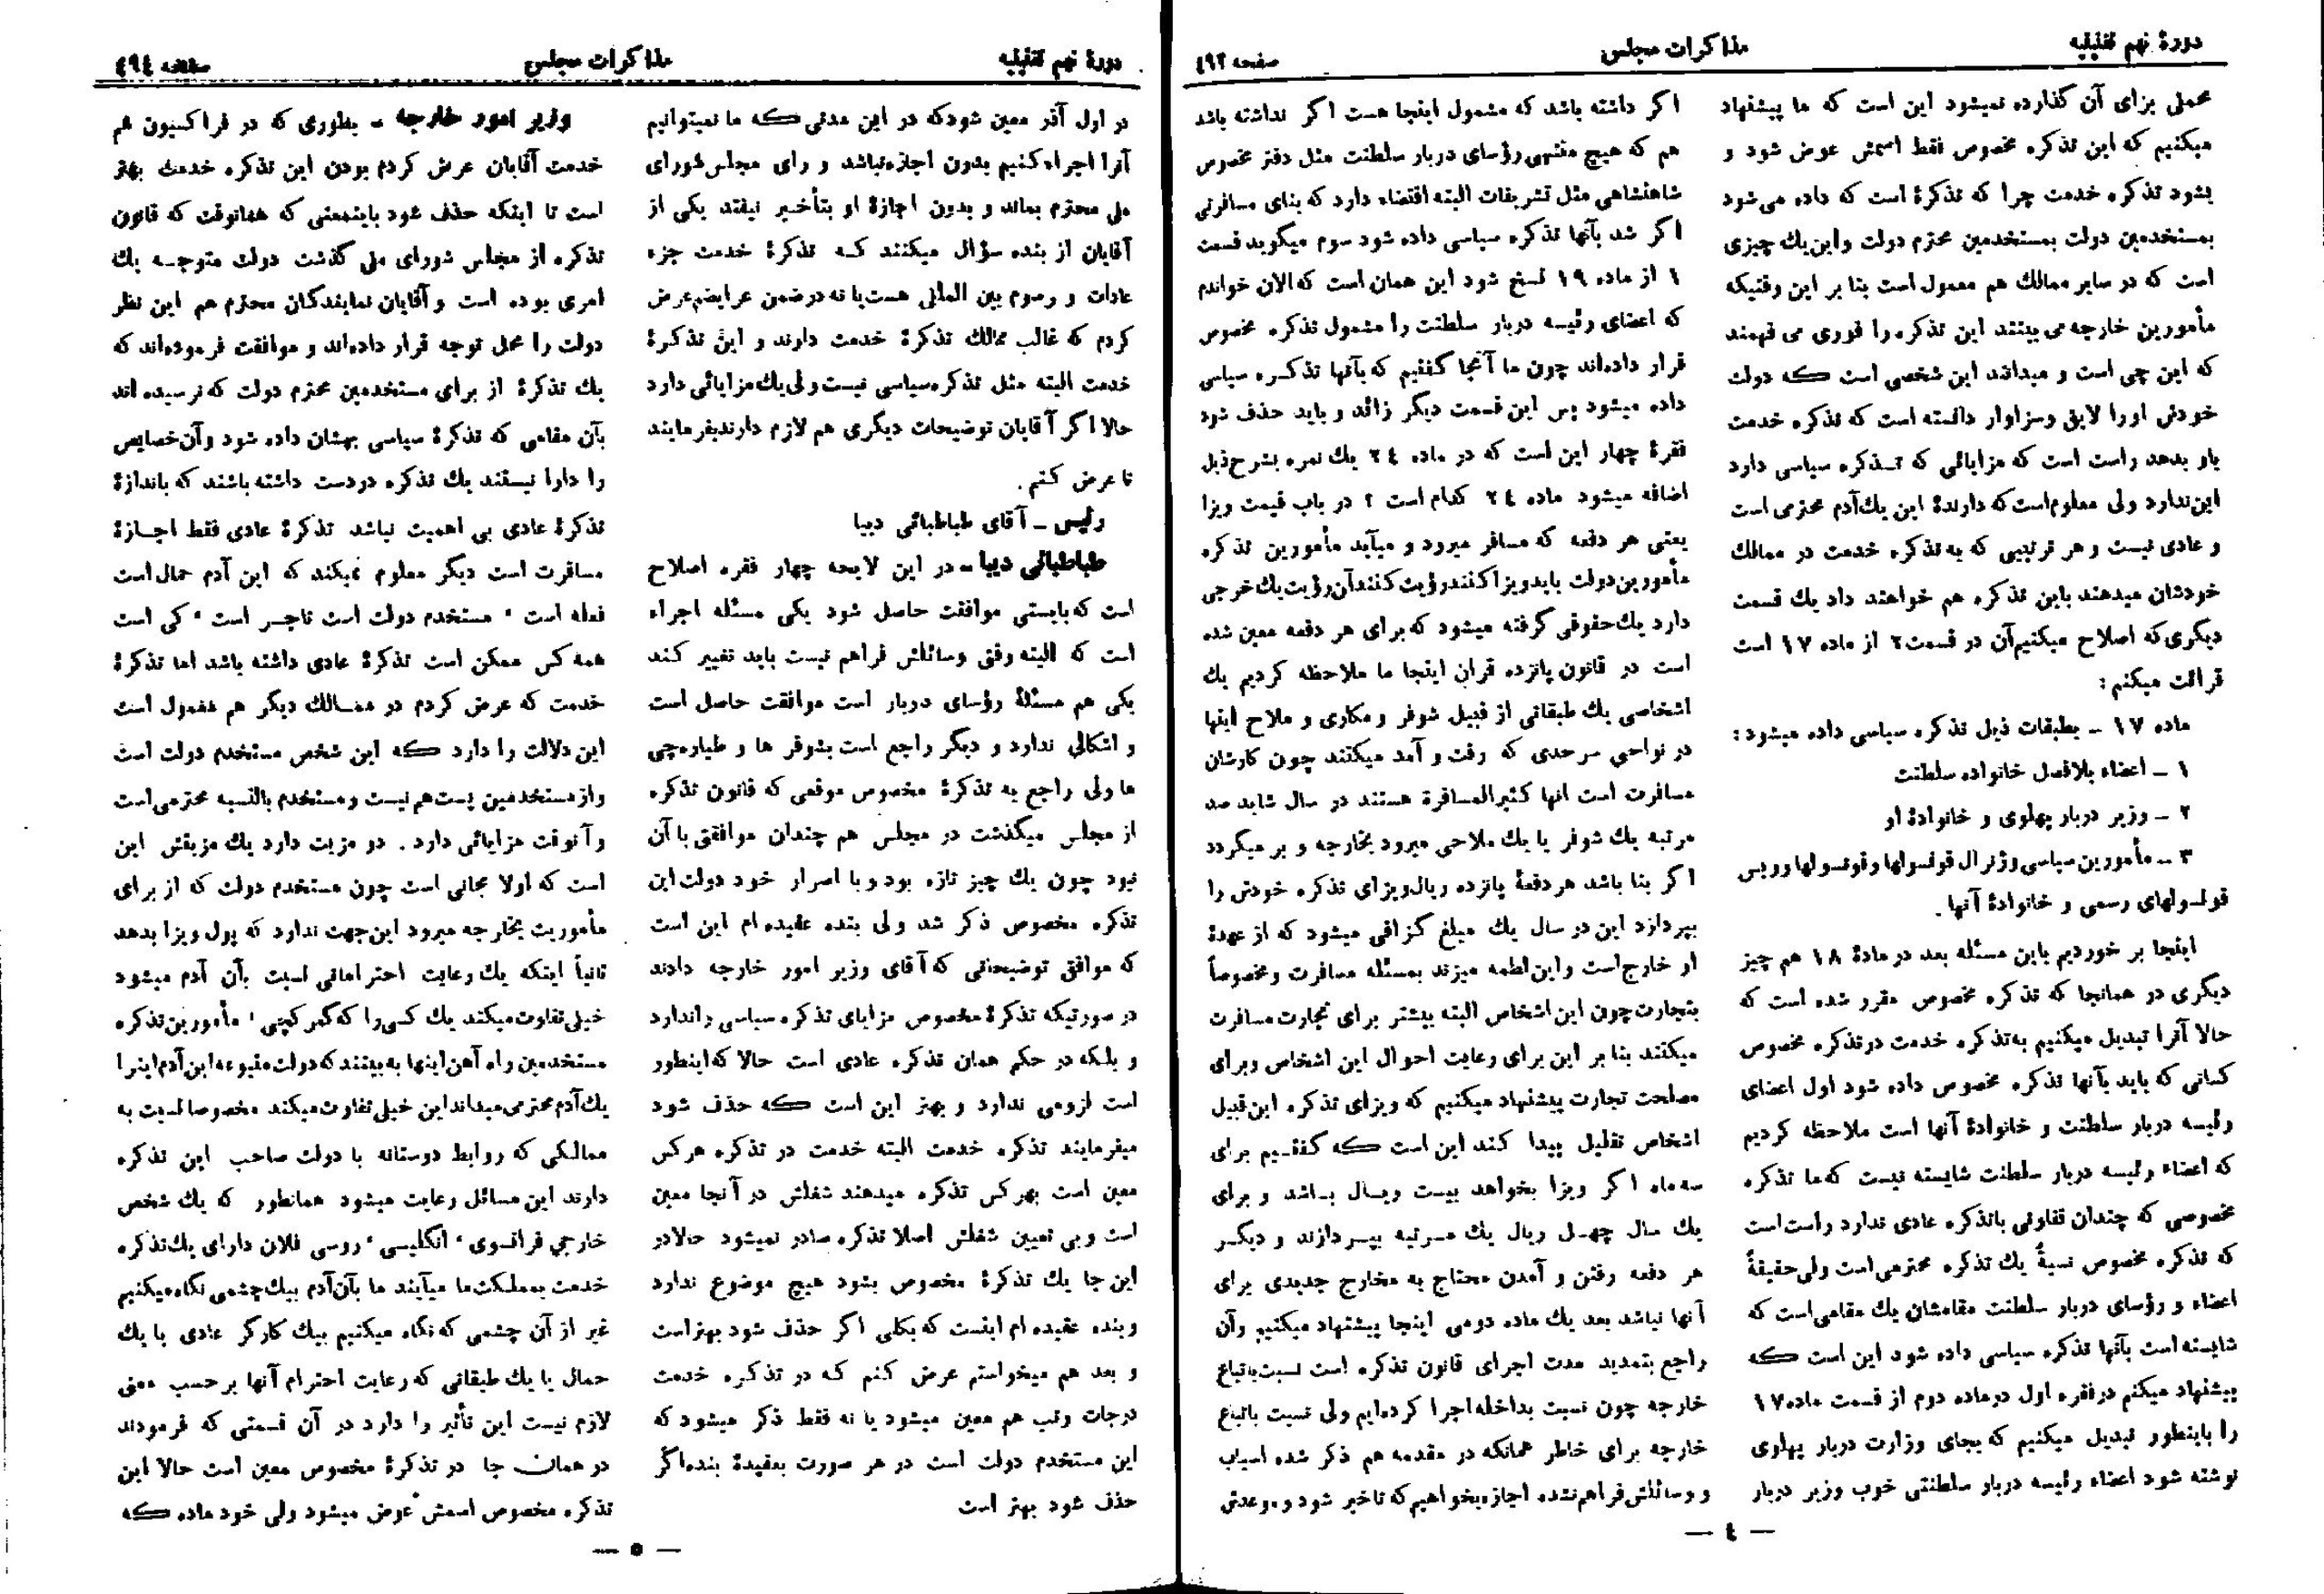 دورهٔ نهم تقنینیه
مذاکرات مجلس
صفحه ٤٩٣
محملی برای آن گذارده نمیشود این است که ما پیشنهاد
میکنیم که این تذکره مخصوص فقط اسمش عوض شود و
بشود تذکره خدمت چرا که تذکرهٔ است که داده می‌شود
بمستخدمین دولت بمستخدمین محترم دولت و این یك چیزی
است که در سایر ممالك هم معمول است بنا بر این وقتیکه
مأمورین خارجه می بینند این تذکره را فوری می فهمند
که این چی است و میدانند این شخصی است که دولت
خودش اورا لایق وسزاوار دانسته است که تذکره خدمت
باو بدهد راست است که مزایائی که تذکره سیاسی دارد
این ندارد ولی معلوم است که دارندهٔ این یك آدم محترمی است
و عادی نیست و هر ترتیبی که به تذکره خدمت در ممالك
خودشان میدهند باین تذکره هم خواهند داد یك قسمت
دیگری که اصلاح میکنیم آن در قسمت ۲ از ماده ۱۷ است
قرائت میکنم :
ماده ۱۷ ـ بطبقات ذیل تذکره سیاسی داده میشود :
۱ ـ اعضاء بلافصل خانواده سلطنت
۲ ـ وزیر دربار پهلوی و خانوادهٔ او
۳ ـ مأمورین سیاسی وژنرال قونسولها وقونسولها وویس
قونسولهای رسمی و خانوادهٔ آنها .
اینجا بر خوردیم باین مسئله بعد در مادهٔ ۱۸ هم چیز
دیگری در همانجا که تذکره مخصوص مقرر شده است که
حالا آنرا تبدیل میکنیم به تذکره خدمت در تذکره مخصوص
کسانی که باید بآنها تذکره مخصوص داده شود اول اعضای
رئیسه دربار سلطنت و خانوادهٔ آنها است ملاحظه کردیم
که اعضاء رئیسه دربار سلطنت شایسته نیست که ما تذکره
مخصوصی که چندان تفاوتی باتذکره عادی ندارد راست است
که تذکره مخصوص نسبةً یك تذکره محترمی است ولی حقیقةً
اعضاء و رؤسای دربار سلطنت مقامشان یك مقامی است که
شایسته است بآنها تذکره سیاسی داده شود این است که
پیشنهاد میکنم در فقره اول در ماده دوم از قسمت ماده ۱۷
را باینطور تبدیل میکنیم که بجای وزارت دربار پهلوی
نوشته شود اعضاء رئیسه دربار سلطنتی خوب وزیر دربار
اگر داشته باشد که مشمول اینجا هست اگر نداشته باشد
هم که هیچ منتهی رؤسای دربار سلطنت مثل دفتر مخصوص
شاهنشاهی مثل تشریفات البته اقتضاء دارد که بنای مسافرتی
اگر شد بآنها تذکره سیاسی داده شود سوم میگوید قسمت
۱ از ماده ۱۹ نسخ شود این همان است که الان خواندم
که اعضای رئیسه دربار سلطنت را مشمول تذکره مخصوص
قرار داده‌اند چون ما آنجا گفتیم که بآنها تذکره سیاسی
داده میشود پس این قسمت دیگر زائد و باید حذف شود
فقرهٔ چهار این است که در ماده ۲٤ یك نمره بشرح ذیل
اضافه میشود ماده ۲٤ کدام است ؟ در باب قیمت ویزا
یعنی هر دفعه که مسافر میرود و میآید مأمورین تذکره
مأمورین دولت باید ویزا کنند رؤیت کنند آن رؤیت یك خرجی
دارد یك حقوقی گرفته میشود که برای هر دفعه معین شده
است در قانون پانزده قران اینجا ما ملاحظه کردیم یك
اشخاصی یك طبقاتی از قبیل شوفر و مکاری و ملاح اینها
در نواحی سرحدی که رفت و آمد میکنند چون کارشان
مسافرت است آنها کثیرالمسافرة هستند در سال شاید صد
مرتبه یك شوفر یا یك ملاحی میرود بخارجه و بر میگردد
اگر بنا باشد هر دفعهٔ پانزده ریال ویزای تذکره خودش را
بپردازد این در سال یك مبلغ گزافی میشود که از عهدهٔ
او خارج است و این لطمه میزند بمسئله مسافرت ومخصوصاً
بتجارت چون این اشخاص البته بیشتر برای تجارت مسافرت
میکنند بنا بر این برای رعایت احوال این اشخاص وبرای
مصلحت تجارت پیشنهاد میکنیم که ویزای تذکره این قبیل
اشخاص تقلیل پیدا کند این است که گفتیم برای
سه ماه اگر ویزا بخواهد بیست ریال باشد و برای
یك سال چهل ریال یك مرتبه بپردازند و دیگر
هر دفعه رفتن و آمدن محتاج به مخارج جدیدی برای
آنها نباشد بعد یك ماده دومی اینجا پیشنهاد میکنیم وآن
راجع بتمدید مدت اجرای قانون تذکره است نسبت باتباع
خارجه چون نسبت بداخله اجرا کرده‌ایم ولی نسبت باتباع
خارجه برای خاطر همانکه در مقدمه هم ذکر شده اسباب
و وسائلش فراهم نشده اجازه بخواهیم که تاخیر شود و موعدش
— ٤ —
دورهٔ نهم تقنینیه
مذاکرات مجلس
صفحه ٤٩٤
در اول آذر معین شود که در این مدتی که ما نمیتوانیم
آنرا اجراء کنیم بدون اجازه نباشد و رای مجلس شورای
ملی محترم بماند و بدون اجازهٔ او بتأخیر نیفتد یکی از
آقایان از بنده سؤال میکنند که تذکرهٔ خدمت جزء
عادات و رسوم بین المللی هست یا نه در ضمن عرایضم عرض
کردم که غالب ممالك تذکرهٔ خدمت دارند و این تذکرهٔ
خدمت البته مثل تذکره سیاسی نیست ولی یك مزایائی دارد
حالا اگر آقایان توضیحات دیگری هم لازم دارند بفرمایند
تا عرض کنم .
رئیس ـ آقای طباطبائی دیبا
طباطبائی دیبا ـ در این لایحه چهار فقره اصلاح
است که بایستی موافقت حاصل شود یکی مسئله اجراء
است که البته وفق وسائلش فراهم نیست باید تغییر کند
یکی هم مسئلهٔ رؤسای دربار است موافقت حاصل است
و اشکالی ندارد و دیگر راجع است بشوفر ها و طیاره‌چی
ها ولی راجع به تذکرهٔ مخصوص موقعی که قانون تذکره
از مجلس میگذشت در مجلس هم چندان موافقتی با آن
نبود چون یك چیز تازه بود و با اصرار خود دولت این
تذکره مخصوص ذکر شد ولی بنده عقیده ام این است
که موافق توضیحاتی که آقای وزیر امور خارجه دادند
در صورتیکه تذکرهٔ مخصوص مزایای تذکره سیاسی را ندارد
و بلکه در حکم همان تذکره عادی است حالا که اینطور
است لزومی ندارد و بهتر این است که حذف شود
میفرمایند تذکره خدمت البته خدمت در تذکره هرکس
معین است بهر کس تذکره میدهند شغلش در آنجا معین
است و بی تعیین شغلش اصلا تذکره صادر نمیشود حالا در
این جا یك تذکرهٔ مخصوص بشود هیچ موضوع ندارد
و بنده عقیده ام اینست که بکلی اگر حذف شود بهتر است
و بعد هم میخواستم عرض کنم که در تذکره خدمت
درجات رتب هم معین میشود یا نه فقط ذکر میشود که
این مستخدم دولت است در هر صورت بعقیدهٔ بنده اگر
حذف شود بهتر است
وزیر امور خارجه ـ بطوری که در فراکسیون هم
خدمت آقایان عرض کردم بودن این تذکره خدمت بهتر
است تا اینکه حذف شود باینمعنی که همانوقت که قانون
تذکره از مجلس شورای ملی گذشت دولت متوجه یك
امری بوده است و آقایان نمایندگان محترم هم این نظر
دولت را محل توجه قرار داده‌اند و موافقت فرموده‌اند که
یك تذکرهٔ از برای مستخدمین محترم دولت که نرسیده اند
بآن مقامی که تذکرهٔ سیاسی بهشان داده شود وآن خصایص
را دارا نیستند یك تذکره در دست داشته باشند که باندازهٔ
تذکرهٔ عادی بی اهمیت نباشد تذکرهٔ عادی فقط اجازهٔ
مسافرت است دیگر معلوم نمیکند که این آدم حمال است
فعله است ، مستخدم دولت است تاجر است ، کی است
همه کس ممکن است تذکرهٔ عادی داشته باشد اما تذکرهٔ
خدمت که عرض کردم در ممالك دیگر هم معمول است
این دلالت را دارد که این شخص مستخدم دولت است
و از مستخدمین پست هم نیست و مستخدم بالنسبه محترمی است
و آنوقت مزایائی دارد . دو مزیت دارد یك مزیتش این
است که اولا مجانی است چون مستخدم دولت که از برای
مأموریت بخارجه میرود این جهت ندارد که پول ویزا بدهد
ثانیاً اینکه یك رعایت احتراماتی نسبت بآن آدم میشود
خیلی تفاوت میکند یك کسی را که گمرکچی ، مأمورین تذکره
مستخدمین راه آهن اینها به بینند که دولت متبوعه این آدم اینرا
یك آدم محترمی میداند این خیلی تفاوت میکند مخصوصا نسبت به
ممالکی که روابط دوستانه با دولت صاحب این تذکره
دارند این مسائل رعایت میشود همانطور که یك شخص
خارجی فرانسوی ، انگلیسی ، روسی فلان دارای یك تذکره
خدمت بمملکت ما میآیند ما بآن آدم بیك چشمی نگاه میکنیم
غیر از آن چشمی که نگاه میکنیم بیك کارگر عادی یا یك
حمال یا یك طبقاتی که رعایت احترام آنها بر حسب معنی
لازم نیست این تأثیر را دارد در آن قسمتی که فرمودند
در همان جا در تذکرهٔ مخصوص معین است حالا این
تذکره مخصوص اسمش عوض میشود ولی خود ماده که
— ٥ —